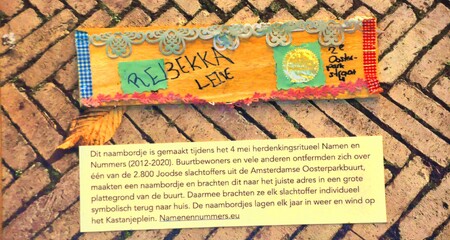 REBEKKA
LEZE
2e
Ooster-
park
Dit naambordje is gemaakt tijdens het 4 mei herdenkingsritueel Namen en
Nummers (2012-2020). Buurtbewoners en vele anderen ontfermden zich over
één van de 2.800 Joodse slachtoffers uit de Amsterdamse Oosterparkbuurt,
maakten een naambordje en brachten dit naar het juiste adres in een grote
plattegrond van de buurt. Daarmee brachten ze elk slachtoffer individueel
symbolisch terug naar huis. De naambordjes lagen elk jaar in weer en wind op
het Kastanjeplein. Namenennummers.eu